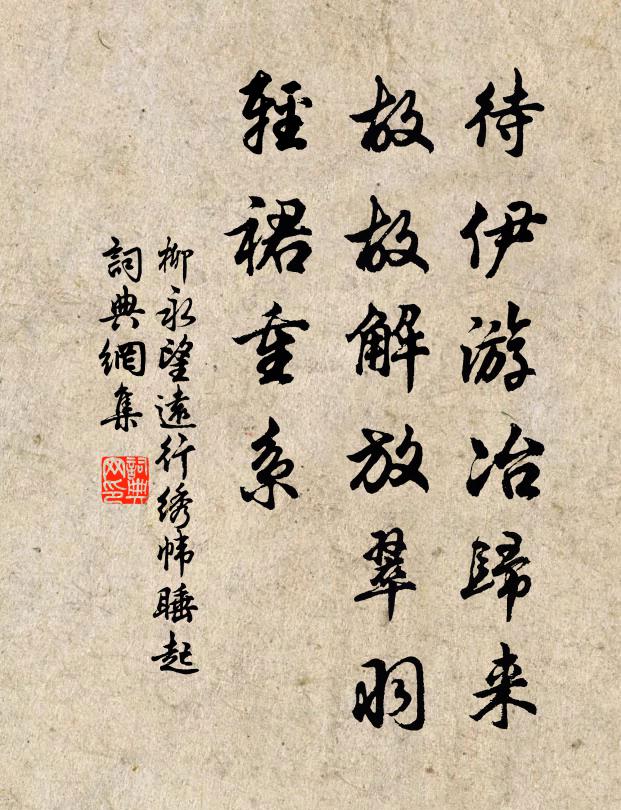 待伊游冶歸来
故故解放翠羽
輕裙重系
柳永望遠行绣帏睡起
詞典網集
詞典网印